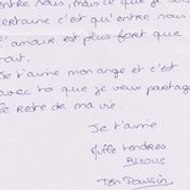 entre nous, mais ce que je suis
certaine c'est qu'entre nous
l'amour est plus fort que
tout.
Je t'aime mon ange et c'est
avec toi que je veux partager
le reste de ma vie.
Je t'aime
Mille tendres
Bisous
Ton Poussin